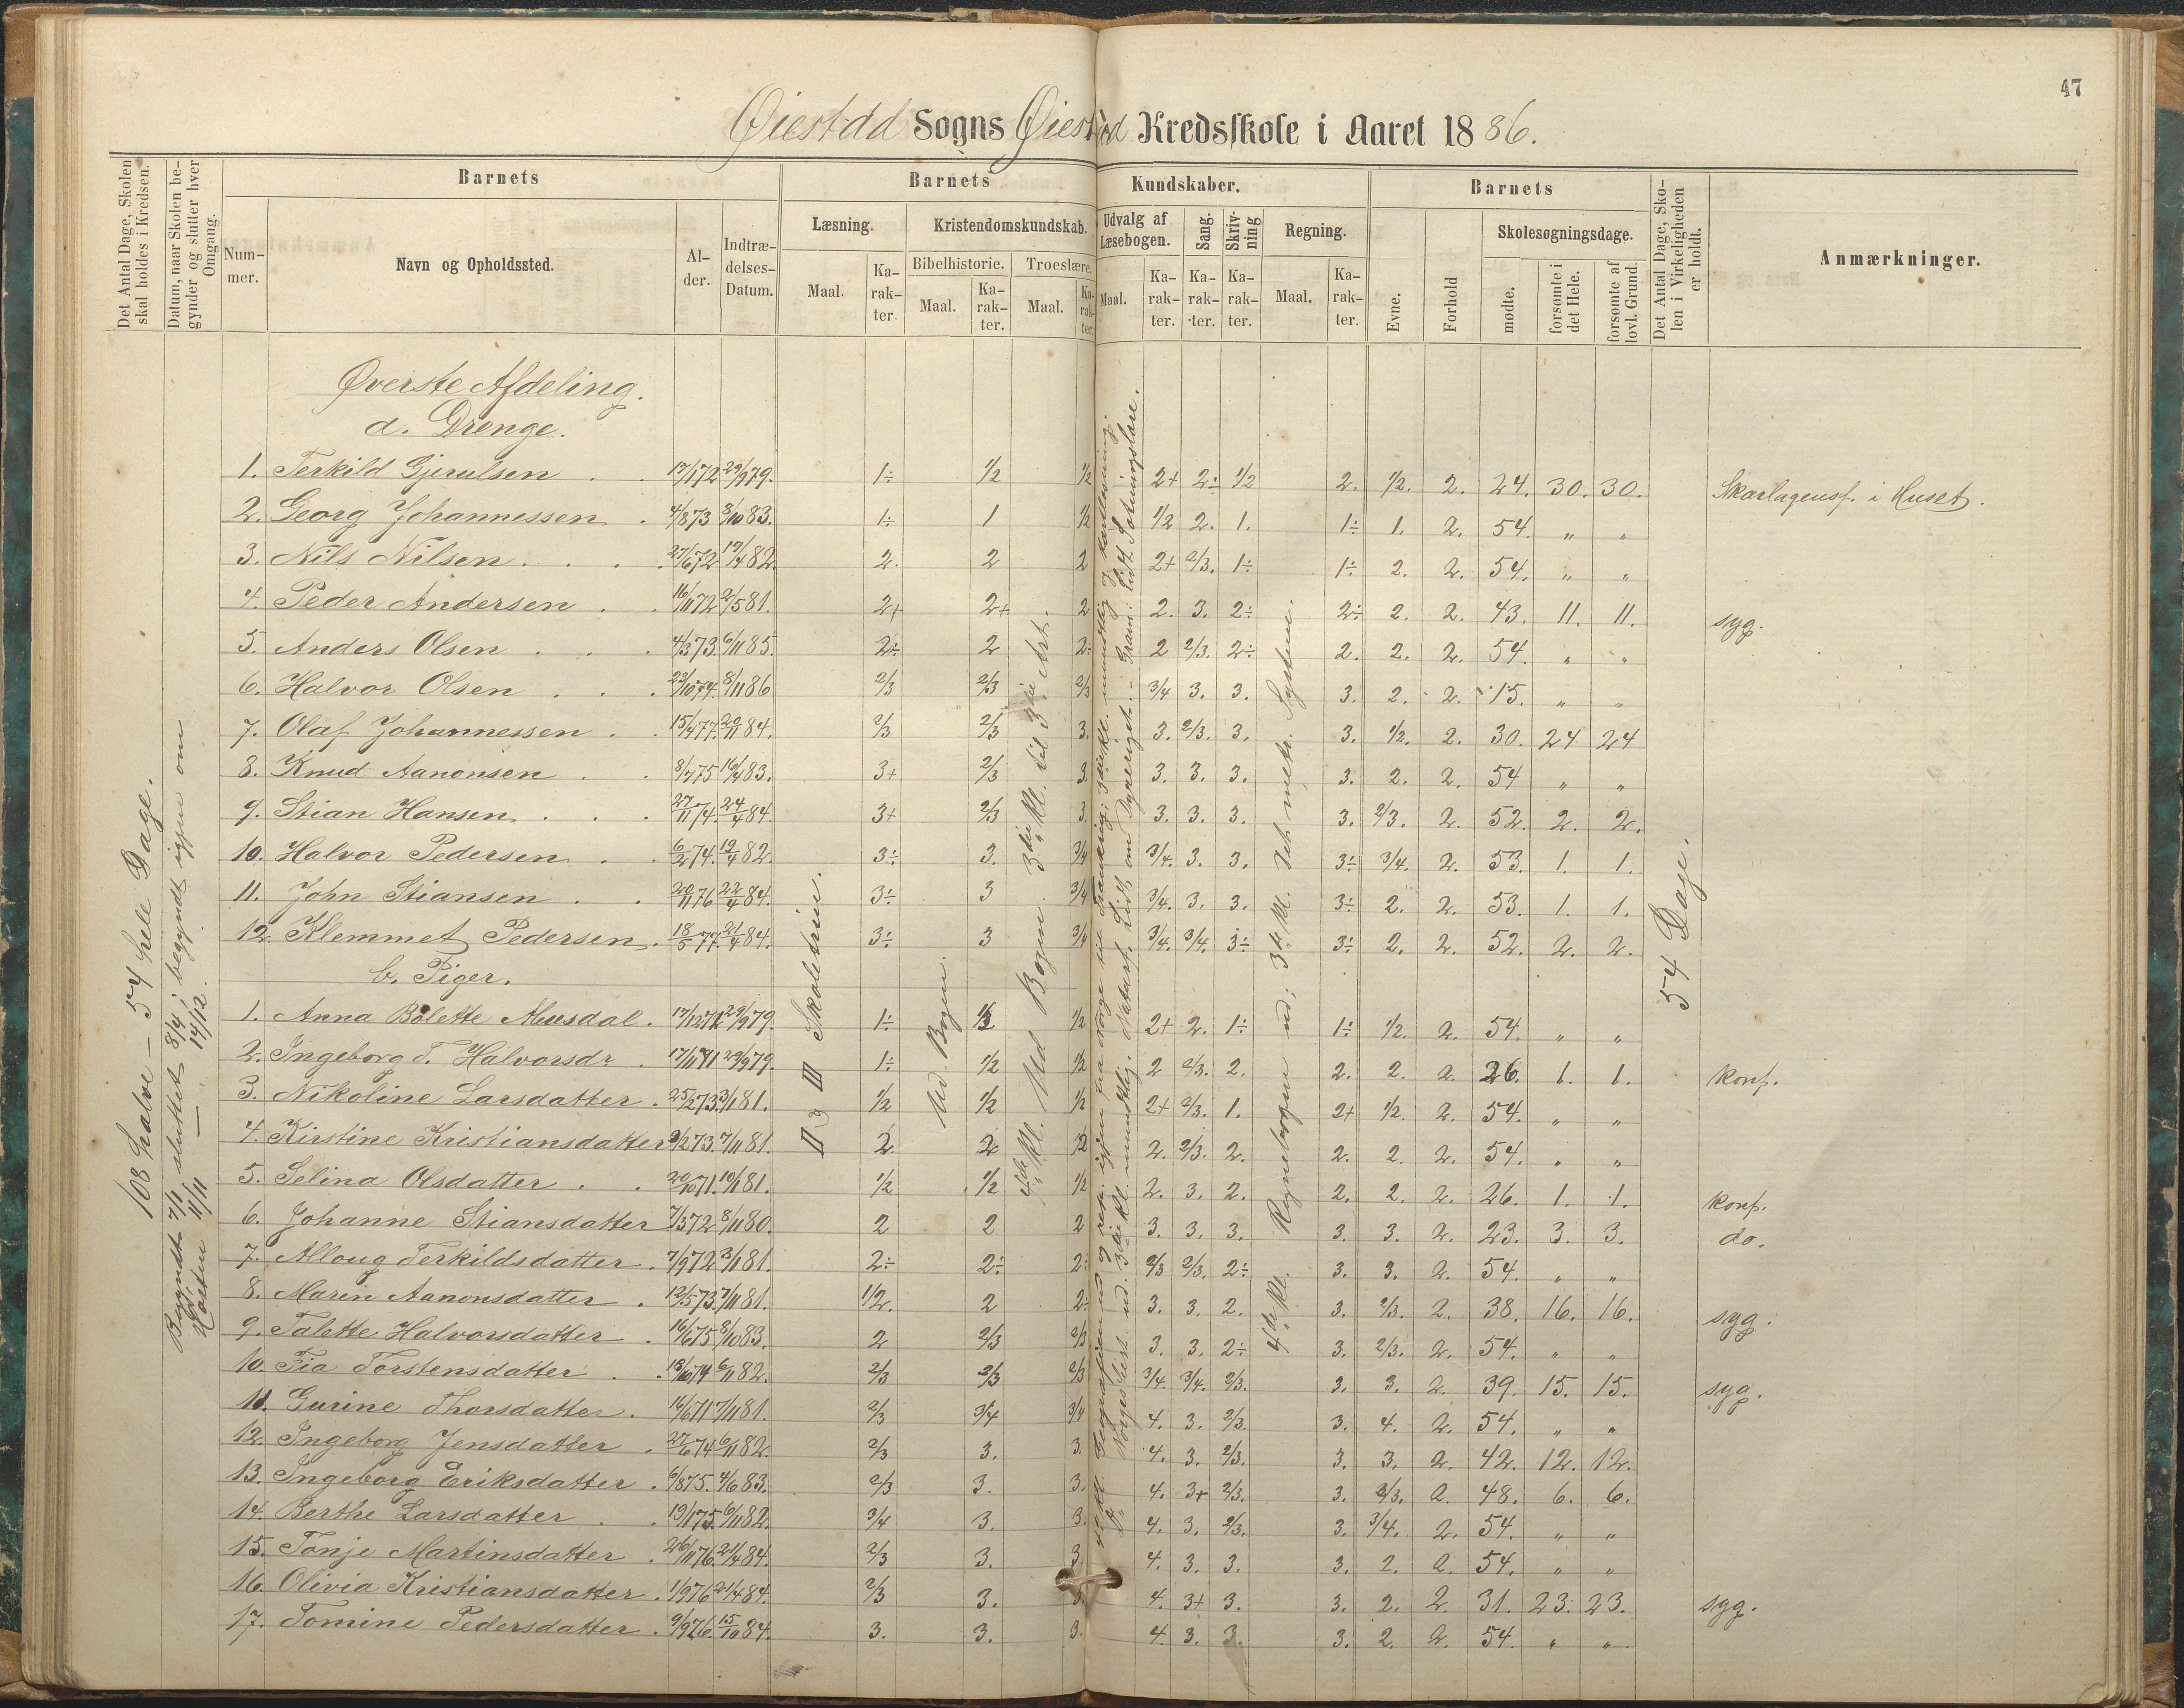 47
Øiestad Sogns Øiestad Kredsskole i Aaret 1886.
Det Antal Dage, Skolen skal holdes i Kredsen.
Datum, naar Skolen begynder og slutter hver Omgang.
Barnets
Nummer.
Navn og Opholdssted.
Alder.
Indtrædelses-Datum.
Barnets Kundskaber.
Læsning.
Maal.
Karakter.
Kristendomskundskab.
Bibelhistorie.
Maal.
Karakter.
Troeslære.
Maal.
Karakter.
Udvalg af Læsebogen.
Maal.
Karakter.
Sang.
Karakter.
Skrivning
Karakter.
Regning.
Maal.
Karakter.
Barnets
Evne.
Forhold
Skolesøgningsdage.
mødte.
forsømte i det Hele.
forsømte af lovl. Grund.
Det Antal Dage, Skolen i Virkeligheden er holdt.
Anmærkninger.
108 halve – 54 hele Dage.
Begyndt 7/1 sluttet 8/4; begyndt igjen om
Høsten 11/11 — 14/12.
II & III Skoletrin.
Ud Bogen.
4de Kl. Ud Bogen. 3die Kl. til 3die Art.
4de Kl. Regnebogen ud; 3die Kl. Det metr. System.
54 Dage.
Øverste Afdeling.
a. Drenge.
1. Terkild Gjerulsen 17/1 72 29/9 79. 1÷ 1/2 1/2 2+ 2÷ 1/2 2. 1/2. 2. 24. 30. 30. Skarlagensf. i Huset.
2. Georg Johannessen 4/8 73 8/10 83. 1÷ 1 1/2 1/2 2. 1. 1÷ 1. 2. 54. " "
3. Nils Nilsen 27/6 72 19/4 82. 2. 2 2 2+ 2/3. 1÷ 1÷ 2. 2. 54. " "
4. Peder Andersen 16/11 72 2/5 81. 2+ 2+ 2 2. 3. 2÷ 2÷ 2. 2. 43. 11. 11. syg.
5. Anders Olsen 4/3 73. 6/11 85. 2÷ 2 2÷ 2 2/3. 2÷ 2. 2. 2. 54. " "
6. Halvor Olsen 23/10 74. 8/11 86 2/3 2/3 2/3 3/4 3. 3. 3. 2. 2. 15. " "
7. Olaf Johannessen 15/4 77. 20/11 84. 2/3 2/3 3. 3. 2/3. 3. 3. 1/2. 2. 30. 24 24
8. Knud Aanonsen 8/7 75 16/4 83. 3+ 2/3 3. 3. 3. 3. 3. 2. 2. 54 " "
9. Stian Hansen 27/11 74. 24/4 84. 3+ 2/3 3. 3. 3. 3. 3. 2/3. 2. 52. 2. 2.
10. Halvor Pedersen 6/2 74. 19/4 82. 3÷ 3. 3/4 3/4. 3. 3. 3÷ 3/4. 2. 53. 1. 1.
11. John Stiansen 20/11 76 22/4 84. 3÷ 3 3/4 3/4. 3. 3. 3÷ 2. 2. 53. 1. 1.
12. Klemmet Pedersen 18/5 77. 21/4 84. 3÷ 3 3/4 3/4. 3/4. 3÷ 3÷ 2. 2. 52. 2. 2.
b. Piger.
1. Anna Bolette Musdal 29/9 79. 1÷ 1/2 2+ 2. 1÷ 1÷ 1/2. 2. 54. " "
2. Ingeborg T. Halvorsdr. 17/11 71 29/9 79. 1÷ 1/2 1/2 2 2/3. 2. 2. 2. 2. 26. 1. 1. konf.
3. Nikoline Larsdatter 25/2 73. 3/1 81. 1/2 1/2 1/2 2+ 2/3. 1. 2+ 1/2. 2. 54. " "
4. Kirstine Kristiansdatter 73. 7/11 81. 2. 2 2. 2/3. 2. 2. 2. 2. 54. " "
5. Selina Olsdatter 20/10 71. 10/1 81. 1/2 1/2 1/2 2. 3. 2. 2. 2. 2. 26. 1. 1. konf.
6. Johanne Stiansdatter 7/3 72 8/11 80. 2 2 2 3. 3. 3. 3. 3. 2. 23. 3. 3. do.
7. Alloug Terkildsdatter 7/9 72 3/1 81. 2÷ 2÷ 2÷ 2/3 2/3. 2÷ 3. 3. 2. 54. " "
8. Maren Aanonsdatter 12/5 73. 7/11 81. 1/2. 2 2÷ 3. 3. 2. 3. 2/3. 2. 38. 16. 16. syg.
9. Talette Halvorsdatter 16/6 75 8/10 83. 2 2/3 2/3 3. 3. 2÷ 3. 2/3. 2. 54. " "
10. Fia Torstensdatter 18/10 74 6/11 82. 2/3 2/3 2/3 3/4. 3/4. 2/3. 3. 3. 2. 39. 15. 15. syg.
11. Gurine Thorsdatter 16/6 71 7/11 81. 2/3 3/4 3/4 4. 3. 2/3. 3. 4. 2. 54. " "
12. Ingeborg Jensdatter 27/6 74 6/11 82. 2/3 3. 3. 4. 3. 2/3. 3. 3. 2. 42. 12. 12.
13. Ingeborg Eriksdatter 6/8 75. 4/6 83. 2/3 3. 3. 4. 3+ 2/3. 3. 2/3. 2. 48. 6. 6.
14. Berthe Larsdatter 19/1 75. 6/11 82. 3/4 3. 3. 4. 3. 2/3. 3. 3/4. 2. 54. " "
15. Tonje Martinsdatter 26/11 76. 21/4 84. 2/3 3. 3. 4. 3. 3. 3. 2. 2. 54. " "
16. Olivia Kristiansdatter 1/9 76 21/4 84. 2/3 3. 3. 4. 3+ 3. 3. 2. 2. 31. 23. 23. syg.
17. Tomine Pedersdatter 9/9 76. 15/10 84. 3. 3. 3. 4. 3. 3. 3. 2. 2. 54. " "